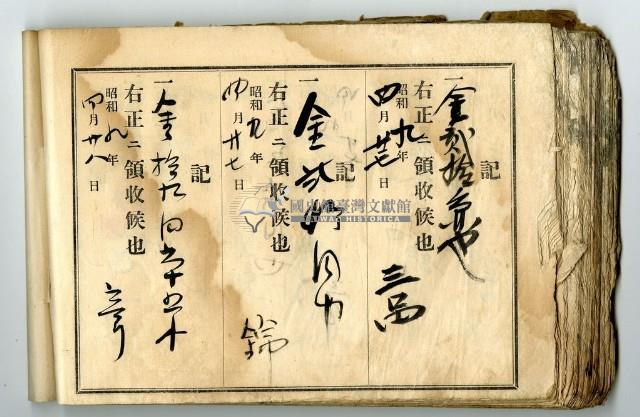 記
一金貳拾
右正ニ領收候也
昭和九年
四月廿七日
三
記
一金貳拾円也
右正ニ領收候也
昭和九年
四月廿七日
記
一金拾九円六十五
右正ニ領收候也
昭和九年
四月廿八日
國史館臺灣文獻館
TAIWAN HISTORICA